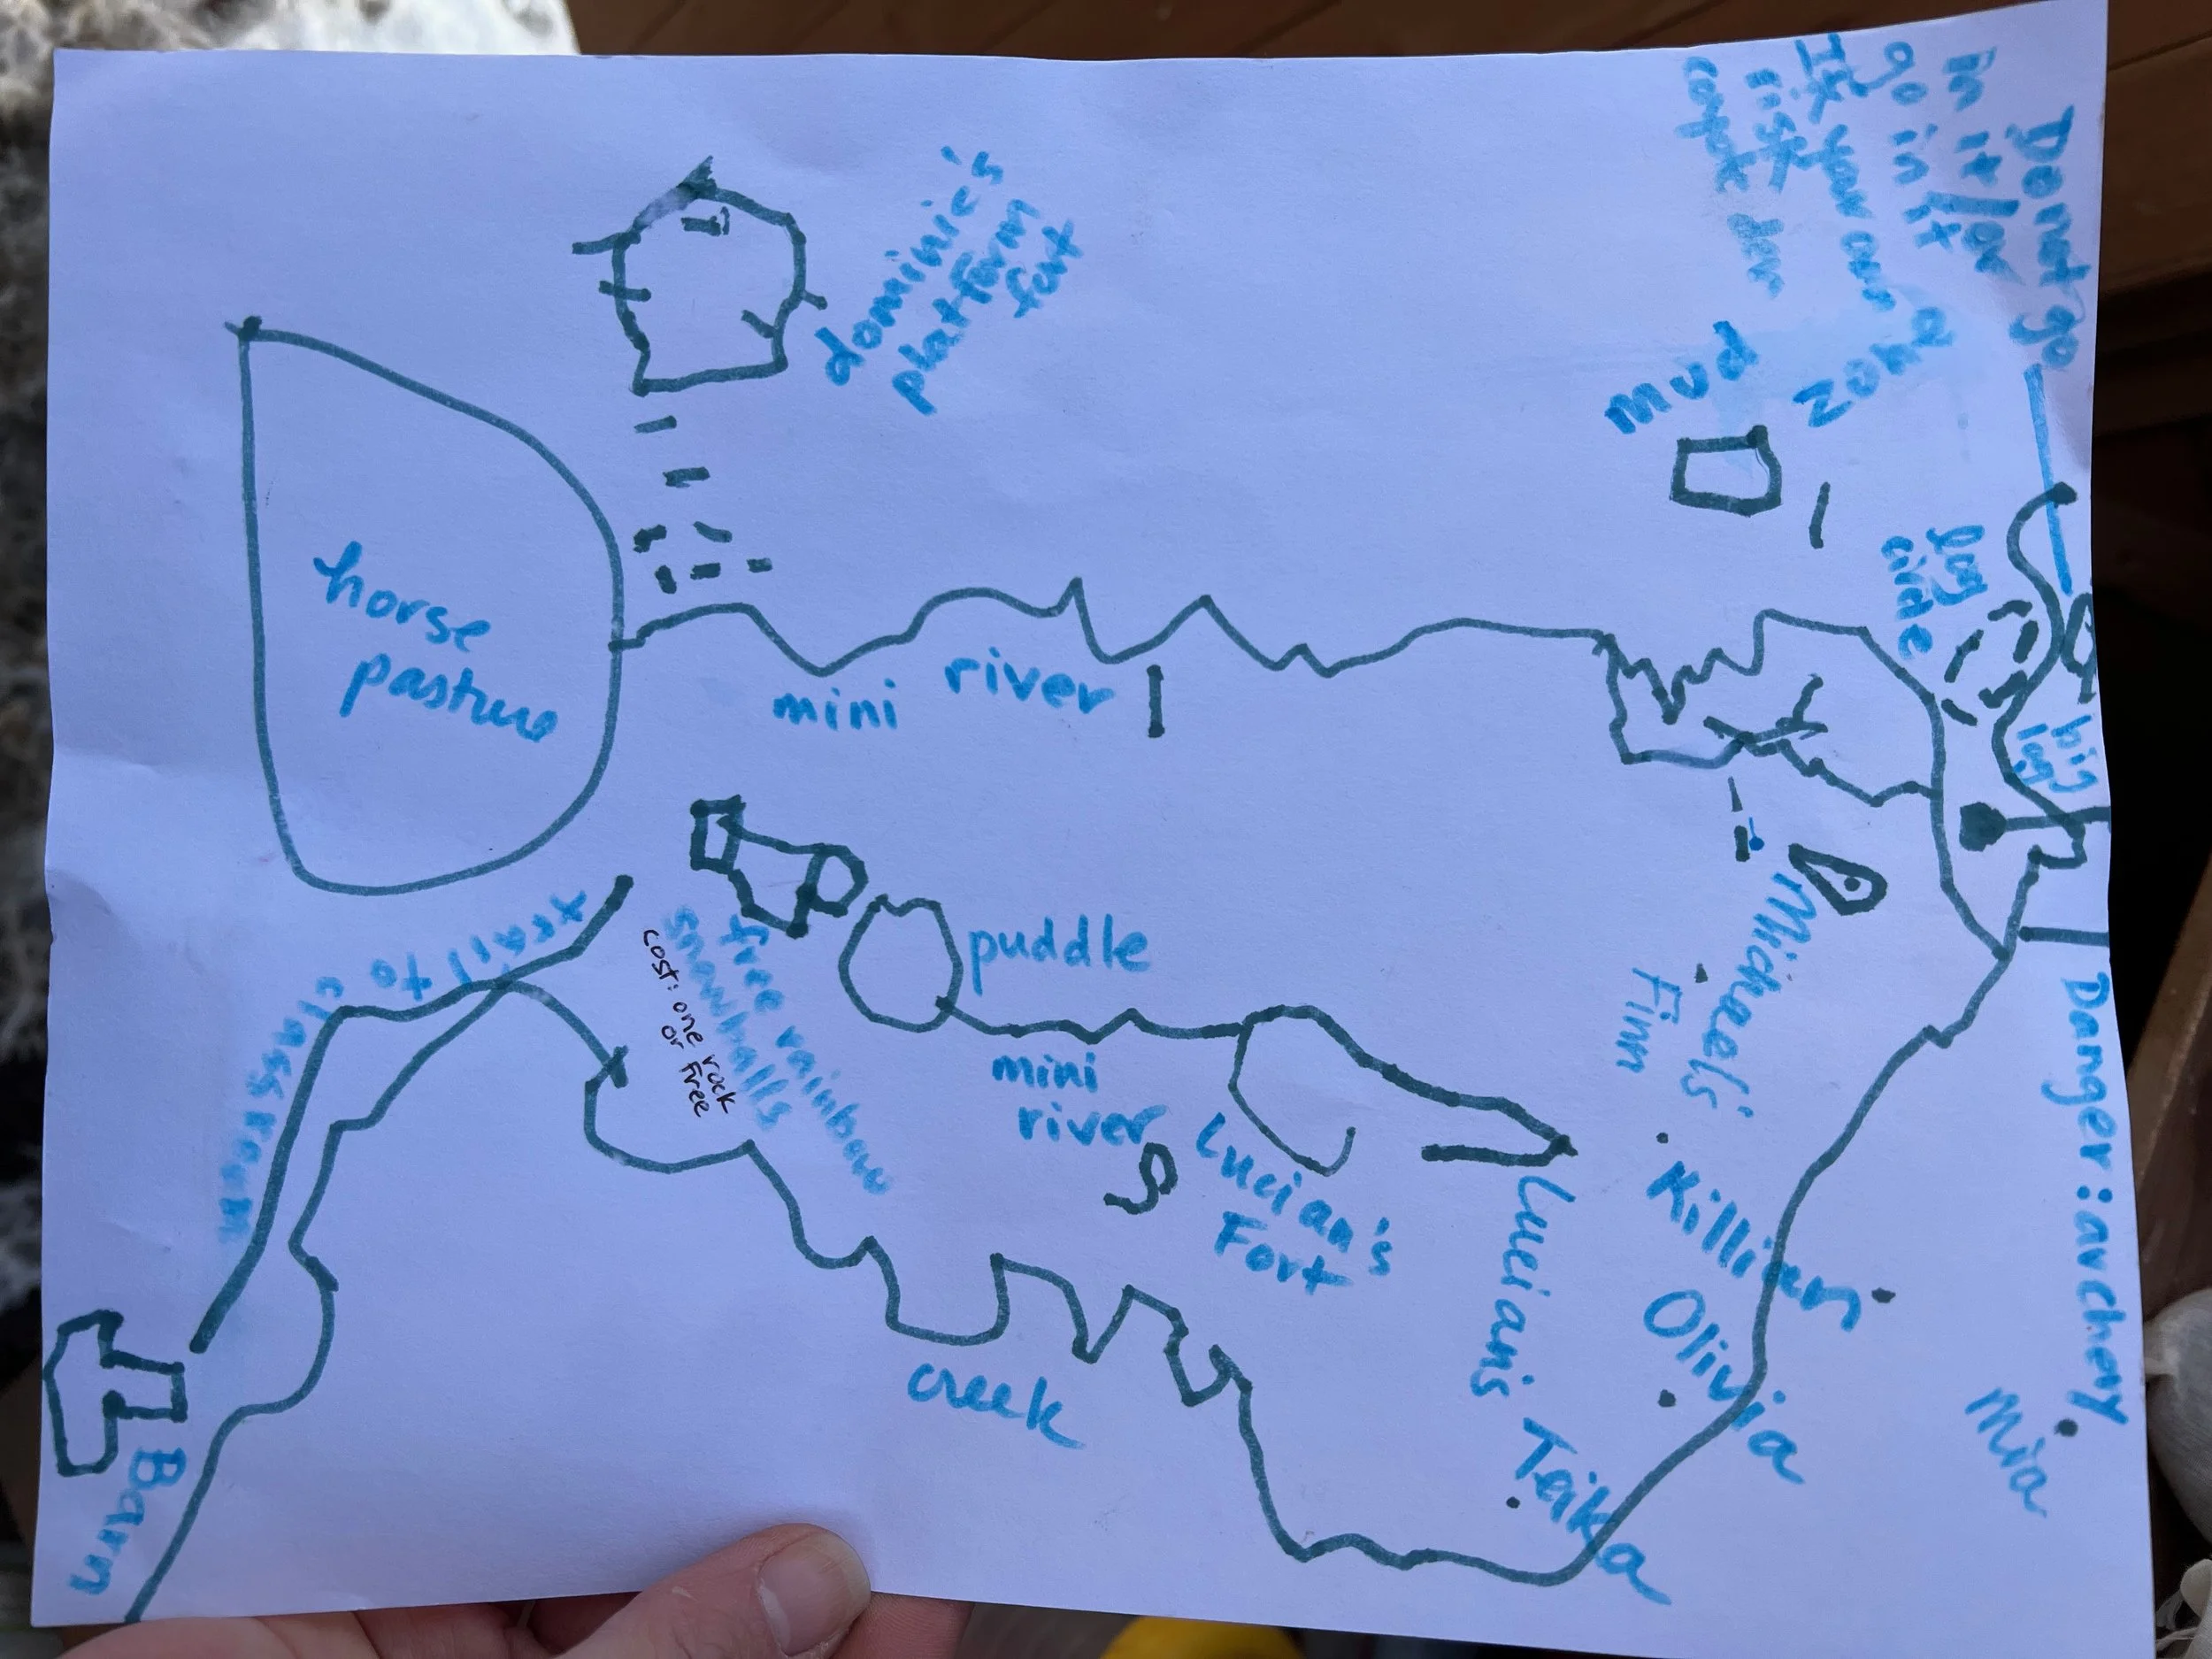 dominic's
platform
fort
Do not go
in it/or
go in it
It your own
risk
mud
zone
log
circle
big
log
horse
pasture
mini river
puddle
free rainbow
snowballs
cost: one rock
or free
trail to
classroom
mini
river
Lucian's
Fort
Michael's
Finn
Killian
Olivia
Lucian's
Teika
Mia
Danger: archery
creek
Barn